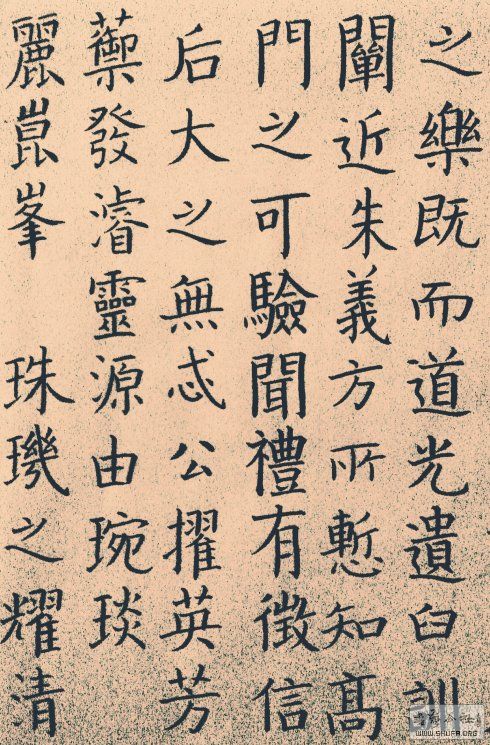 之樂既而道光遺臼訓
闡近朱義方所慙知高
門之可驗聞禮有徵信
后大之無忒公擢英芳
蘌發濬靈源由琬琰
麗崑峯 珠璣之耀清
WWW.SHUFA.ORG